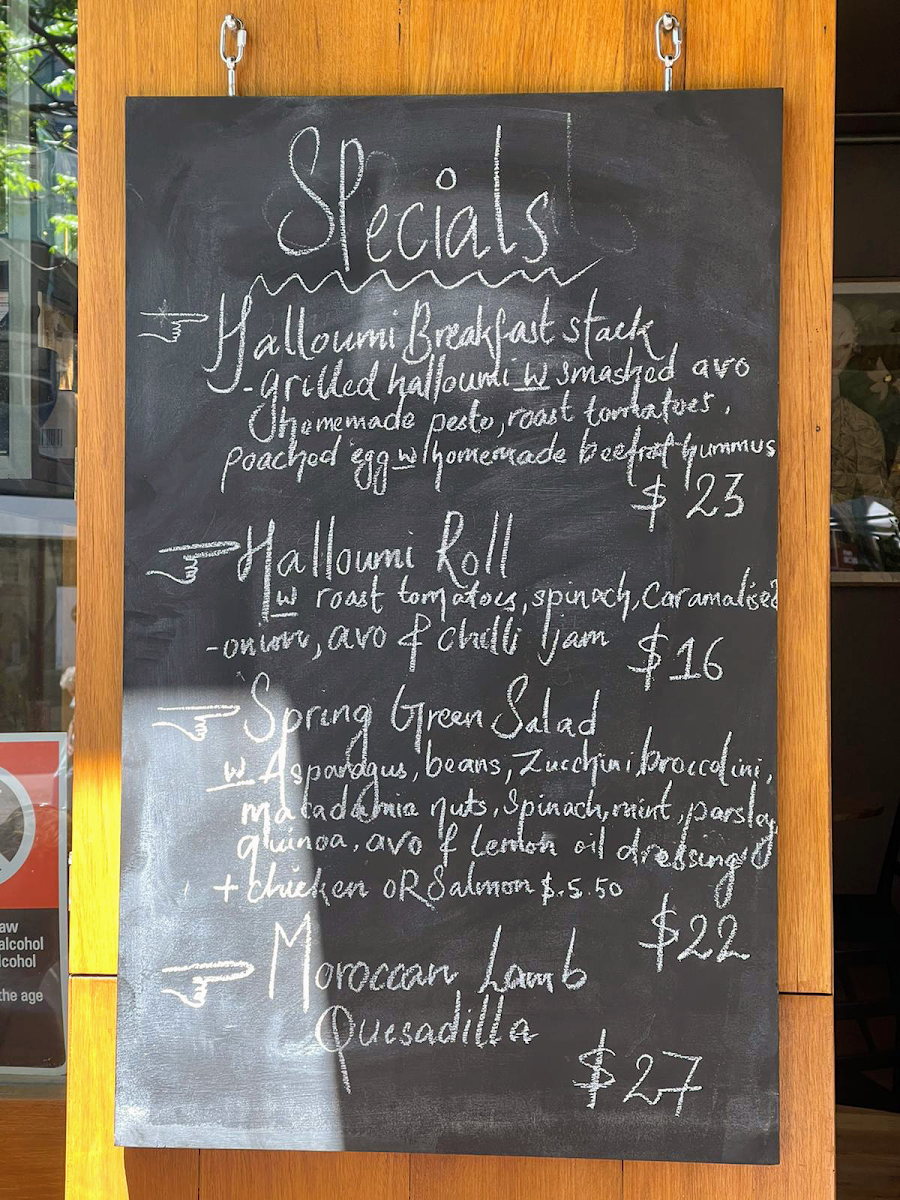 Specials
Halloumi Breakfast stack
-grilled halloumi w smashed avo
homemade pesto, roast tomatoes,
poached egg w homemade beetroot hummus
$23
Halloumi Roll
w roast tomatoes, spinach, Caramalised
-onion, avo & chilli jam $16
Spring Green Salad
w Asparagus, beans, Zucchini, broccolini,
macadamia nuts, Spinach, mint, parsley
quinoa, avo & Lemon oil dressing
+ chicken OR Salmon $.5.50
$22
Moroccan Lamb
Quesadilla
$27
aw
alcohol
lcohol
the age